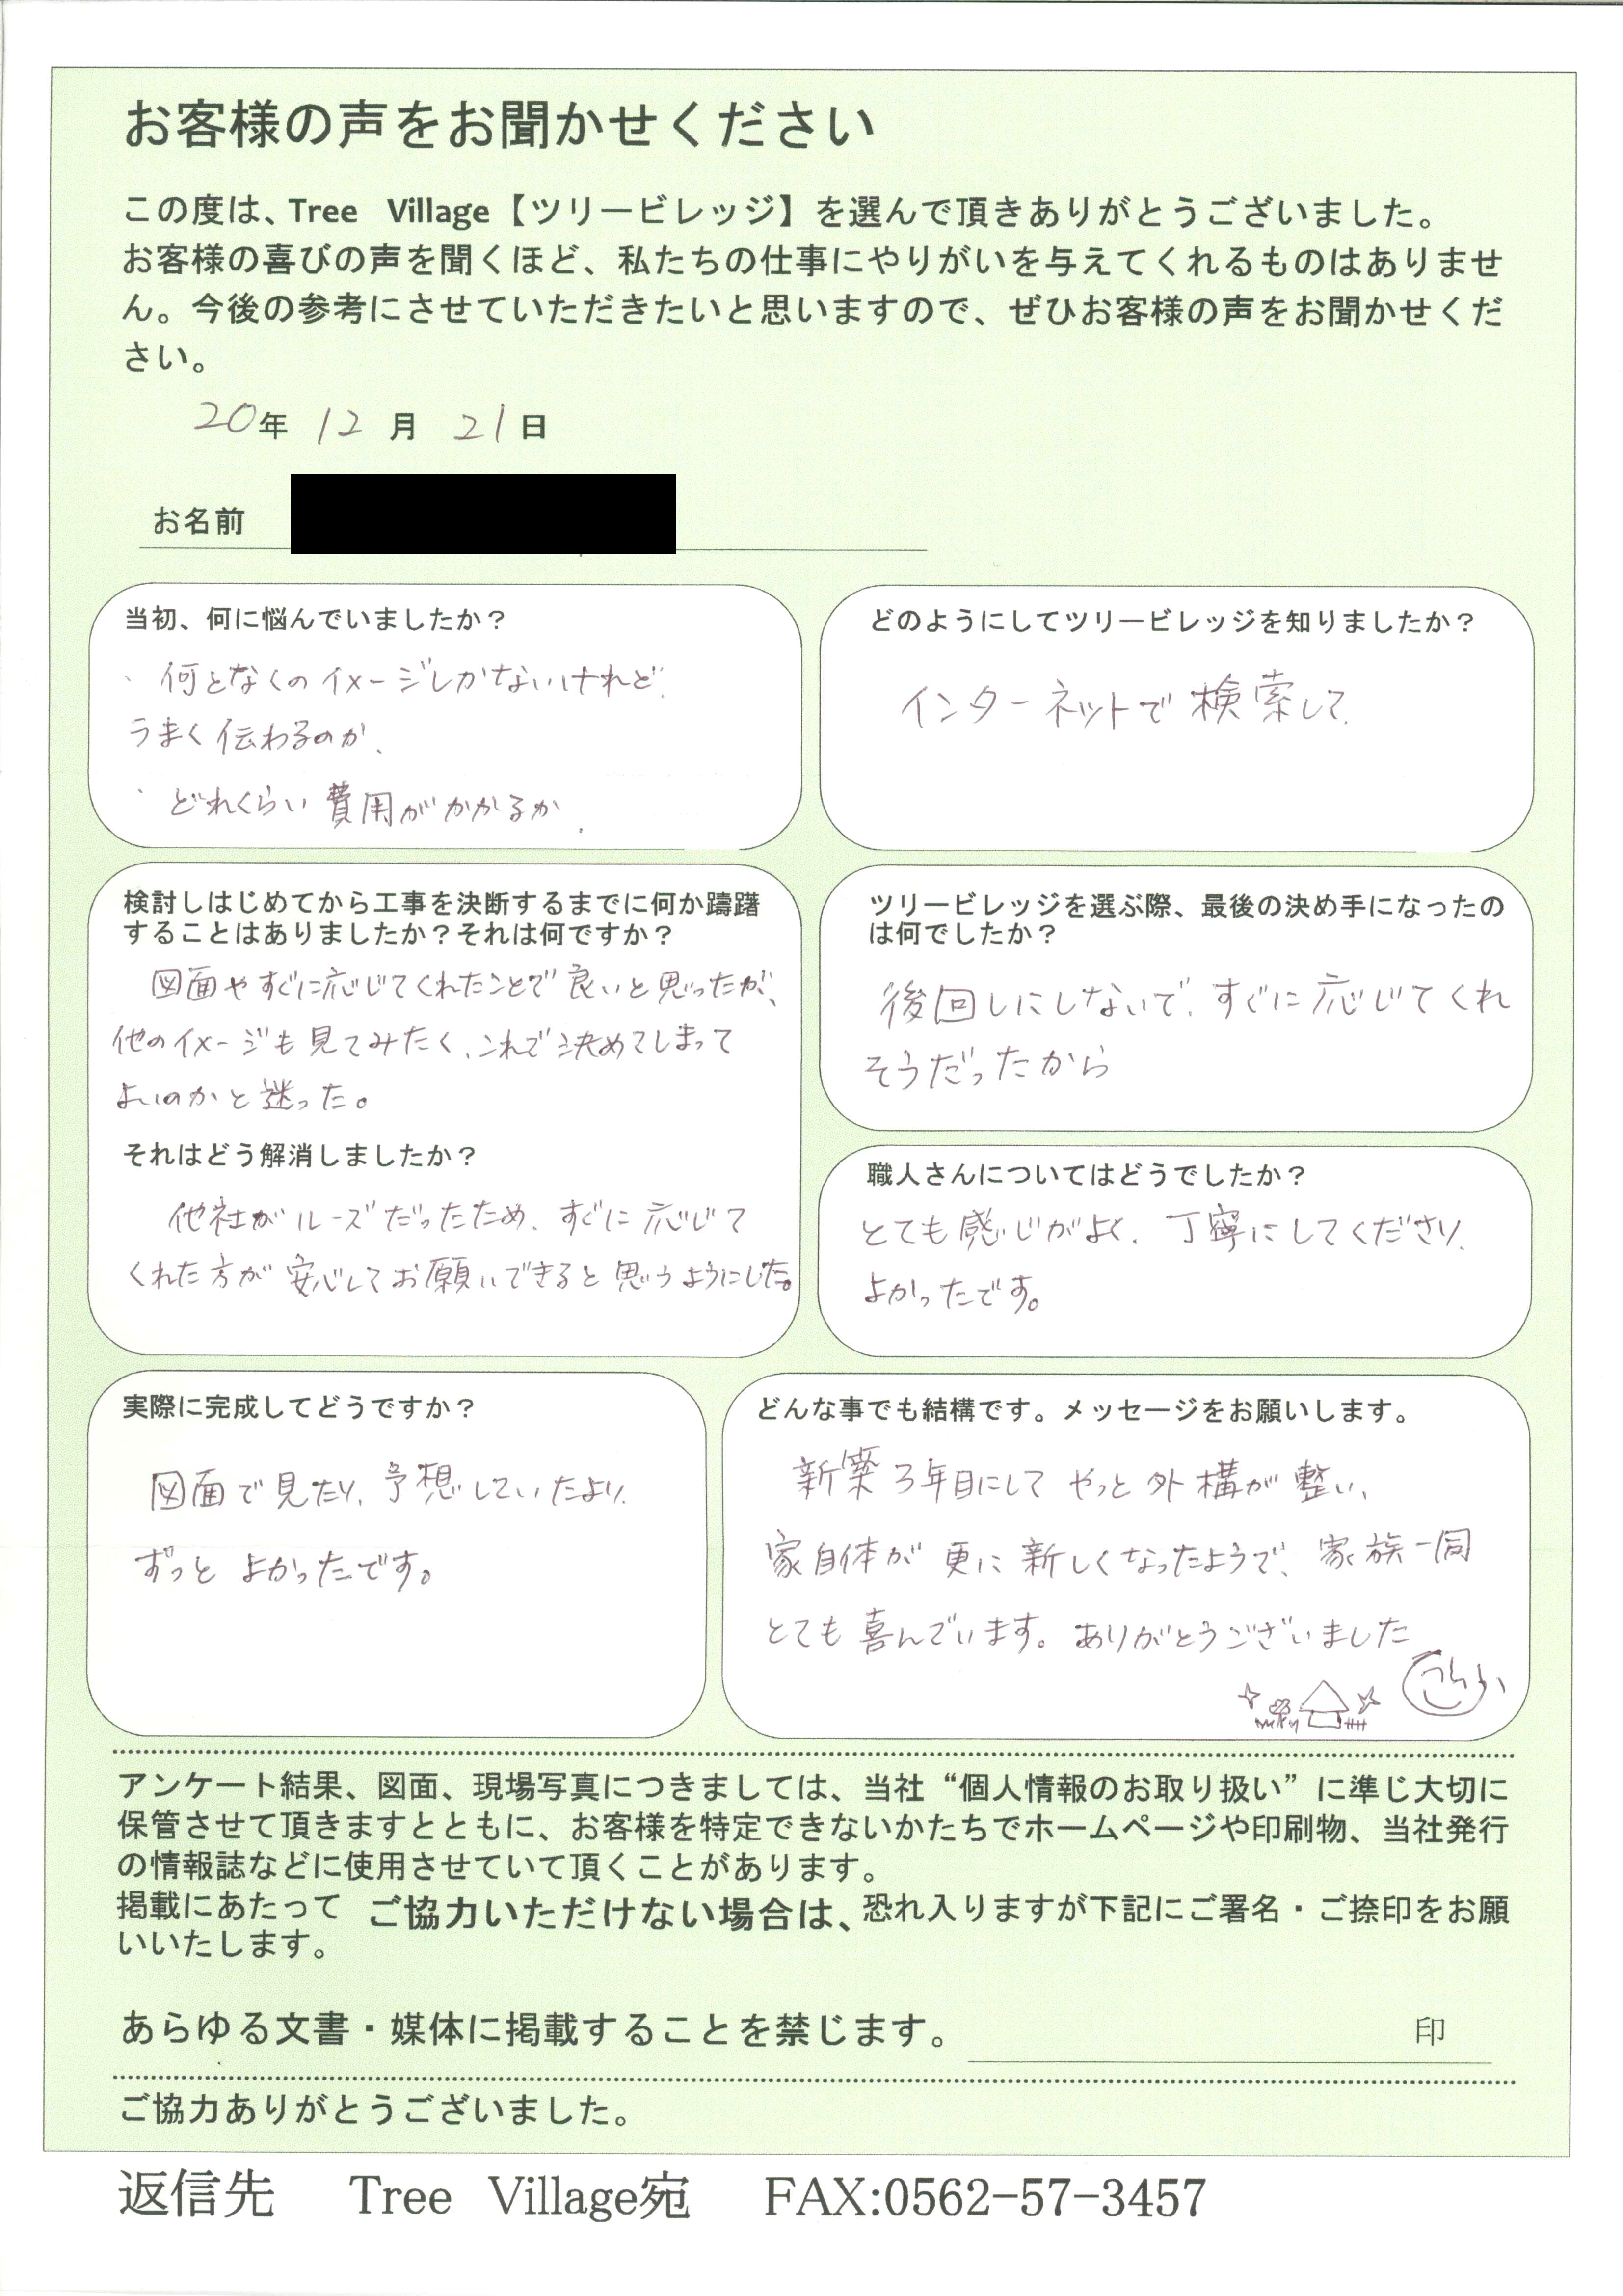 お客様の声をお聞かせください
この度は、Tree Village【ツリービレッジ】を選んで頂きありがとうございました。
お客様の喜びの声を聞くほど、私たちの仕事にやりがいを与えてくれるものはありませ
ん。今後の参考にさせていただきたいと思いますので、ぜひお客様の声をお聞かせくだ
さい。
20年 12月 21日
お名前
当初、何に悩んでいましたか？
・何となくのイメージしかないけれど、
うまく伝わるのか、
・どれくらい費用がかかるか、
どのようにしてツリービレッジを知りましたか？
インターネットで検索して、
検討しはじめてから工事を決断するまでに何か躊躇
することはありましたか？それは何ですか？
図面やすぐに応じてくれたことで良いと思ったが、
他のイメージも見てみたく、これで決めてしまって
よいのかと迷った。
それはどう解消しましたか？
他社がルーズだったため、すぐに応じて
くれた方が安心してお願いできると思うようにした。
ツリービレッジを選ぶ際、最後の決め手になったの
は何でしたか？
後回しにしないで、すぐに応じてくれ
そうだったから
職人さんについてはどうでしたか？
とても感じがよく、丁寧にしてくださり、
よかったです。
実際に完成してどうですか？
図面で見たり、予想していたより、
ずっとよかったです。
どんな事でも結構です。メッセージをお願いします。
新築3年目にしてやっと外構が整い、
家自体が更に新しくなったようで、家族一同
とても喜んでいます。ありがとうございました
アンケート結果、図面、現場写真につきましては、当社“個人情報のお取り扱い”に準じ大切に
保管させて頂きますとともに、お客様を特定できないかたちでホームページや印刷物、当社発行
の情報誌などに使用させていて頂くことがあります。
掲載にあたって ご協力いただけない場合は、恐れ入りますが下記にご署名・ご捺印をお願
いいたします。
あらゆる文書・媒体に掲載することを禁じます。 印
ご協力ありがとうございました。
返信先 Tree Village宛 FAX:0562-57-3457